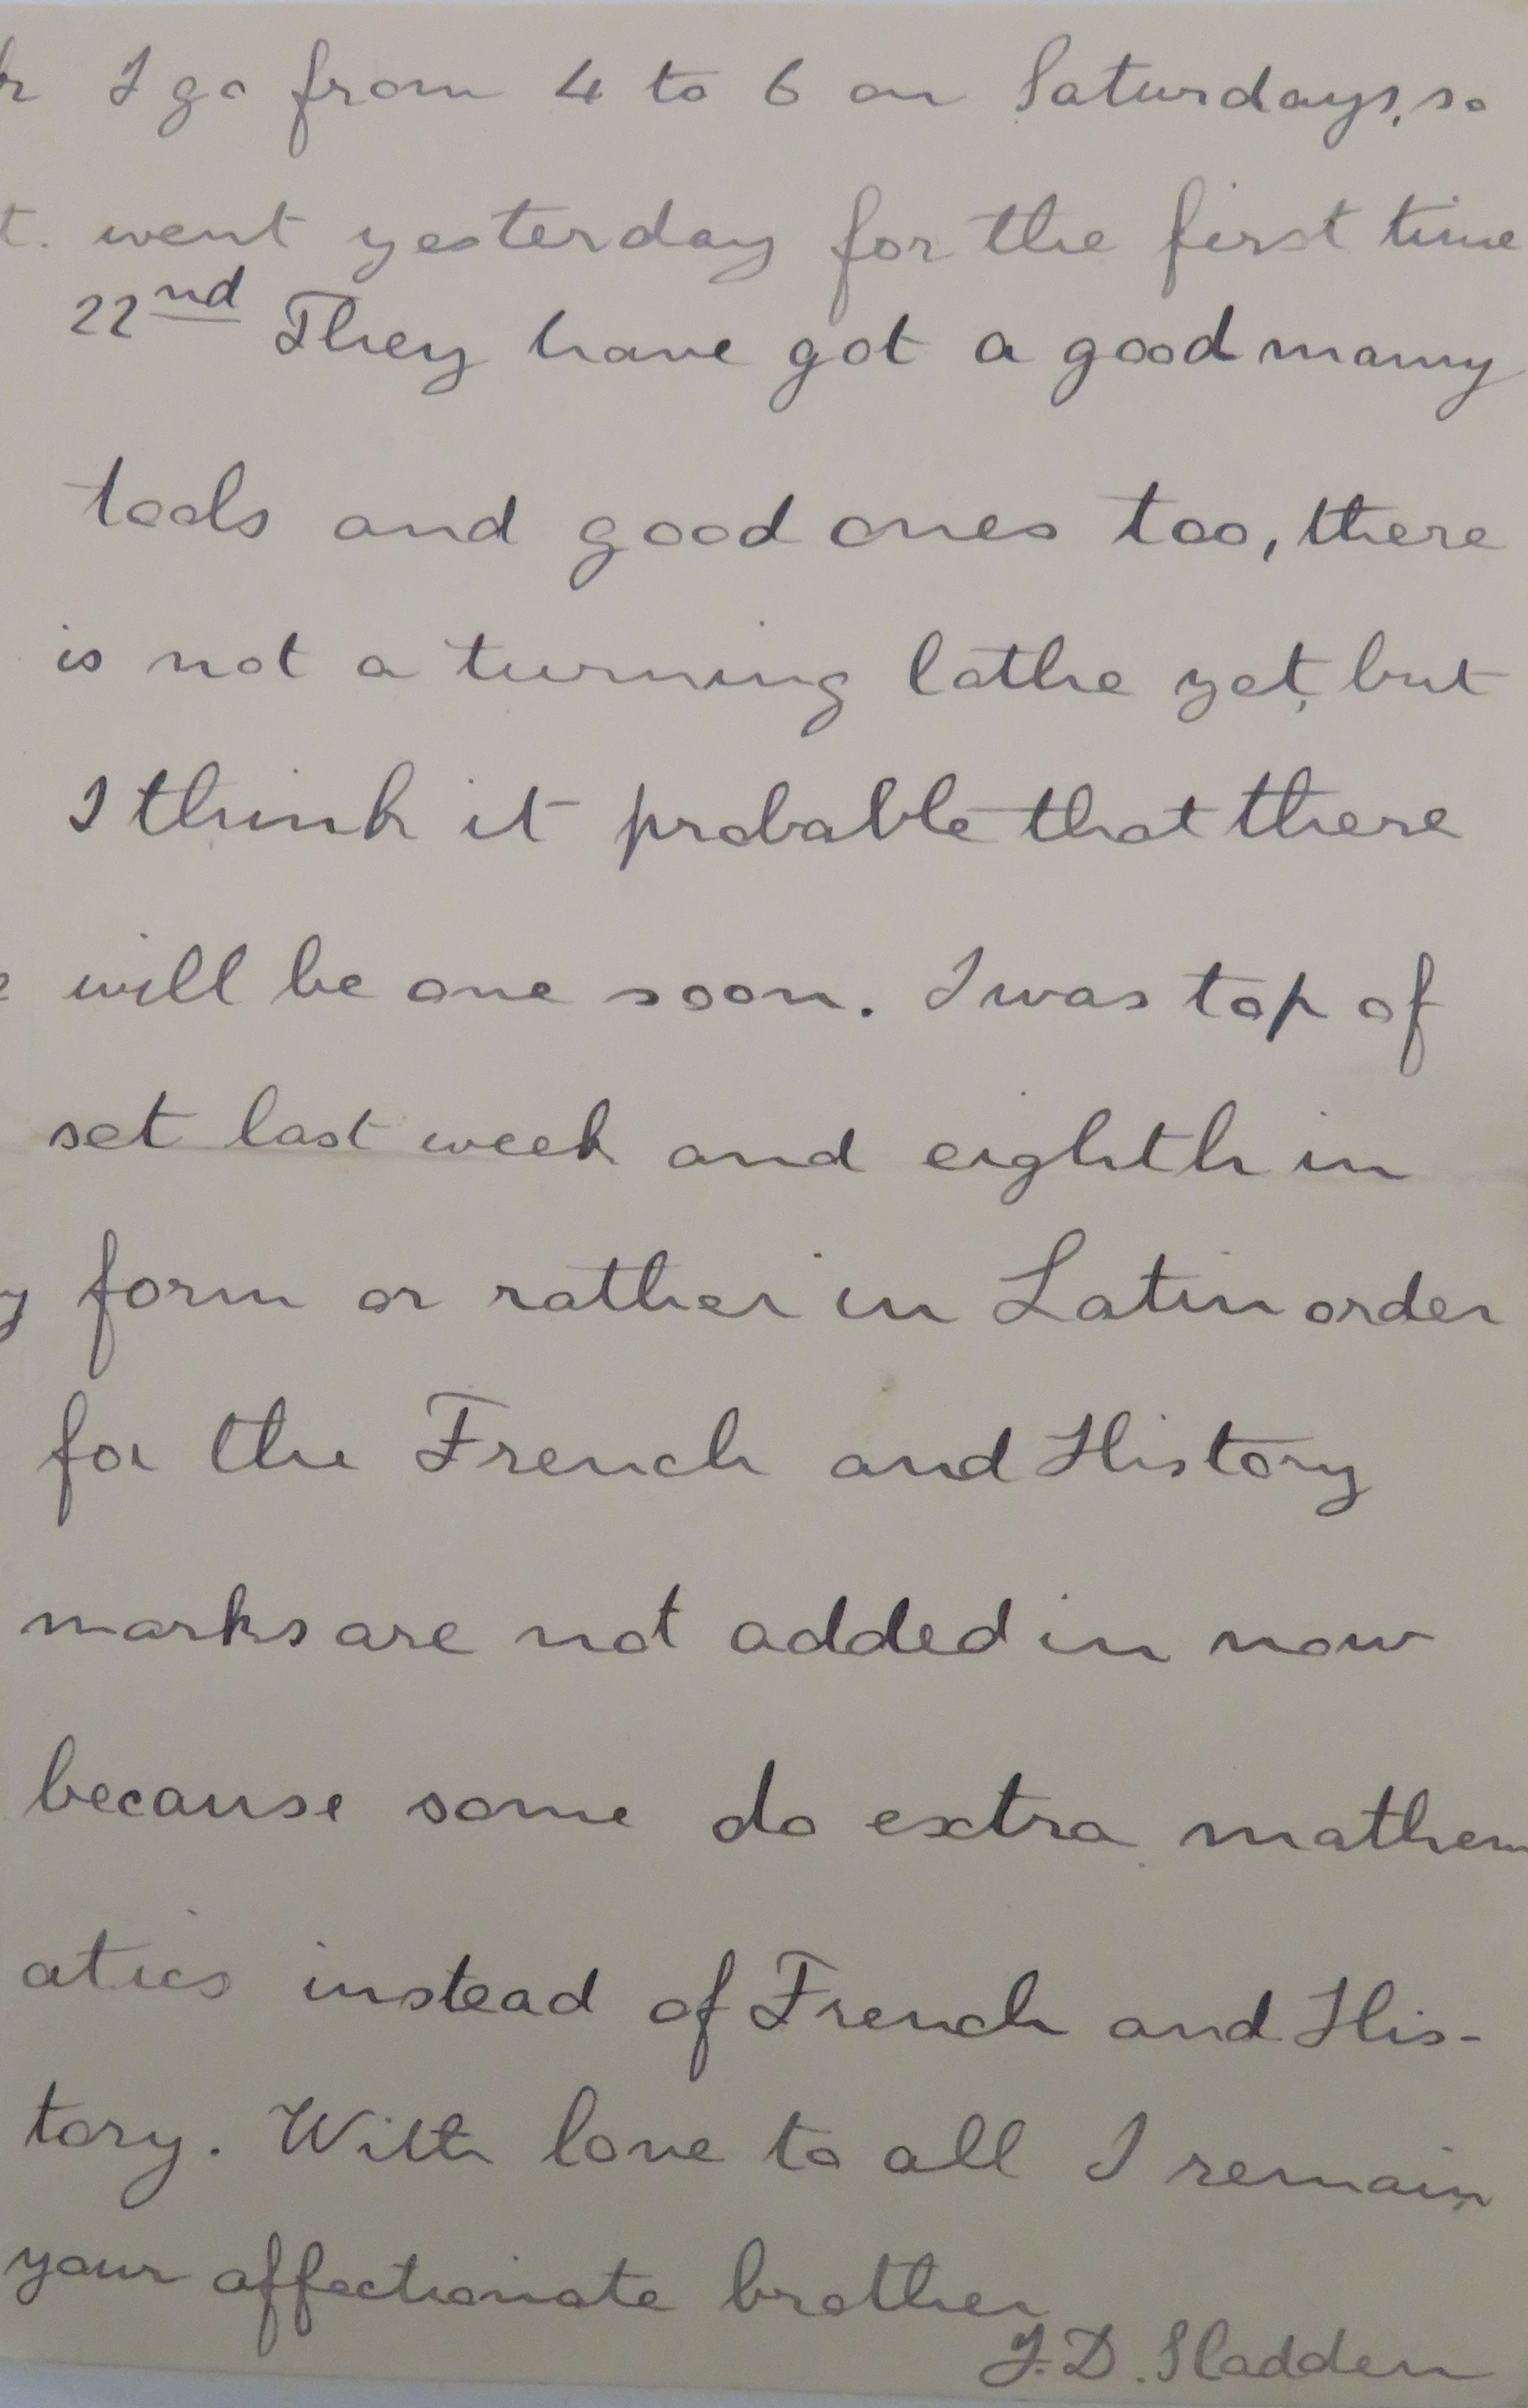 I go from 4 to 6 on Saturdays, so
went yesterday for the first time
22nd They have got a good many
tools and good ones too, there
is not a turning lathe yet, but
I think it probable that there
will be one soon. I was top of
set last week and eighth in
form or rather in Latin order
for the French and History
marks are not added in now
because some do extra mathem
atics instead of French and His-
tory. With love to all I remain
your affectionate brother
J. D. Sladden